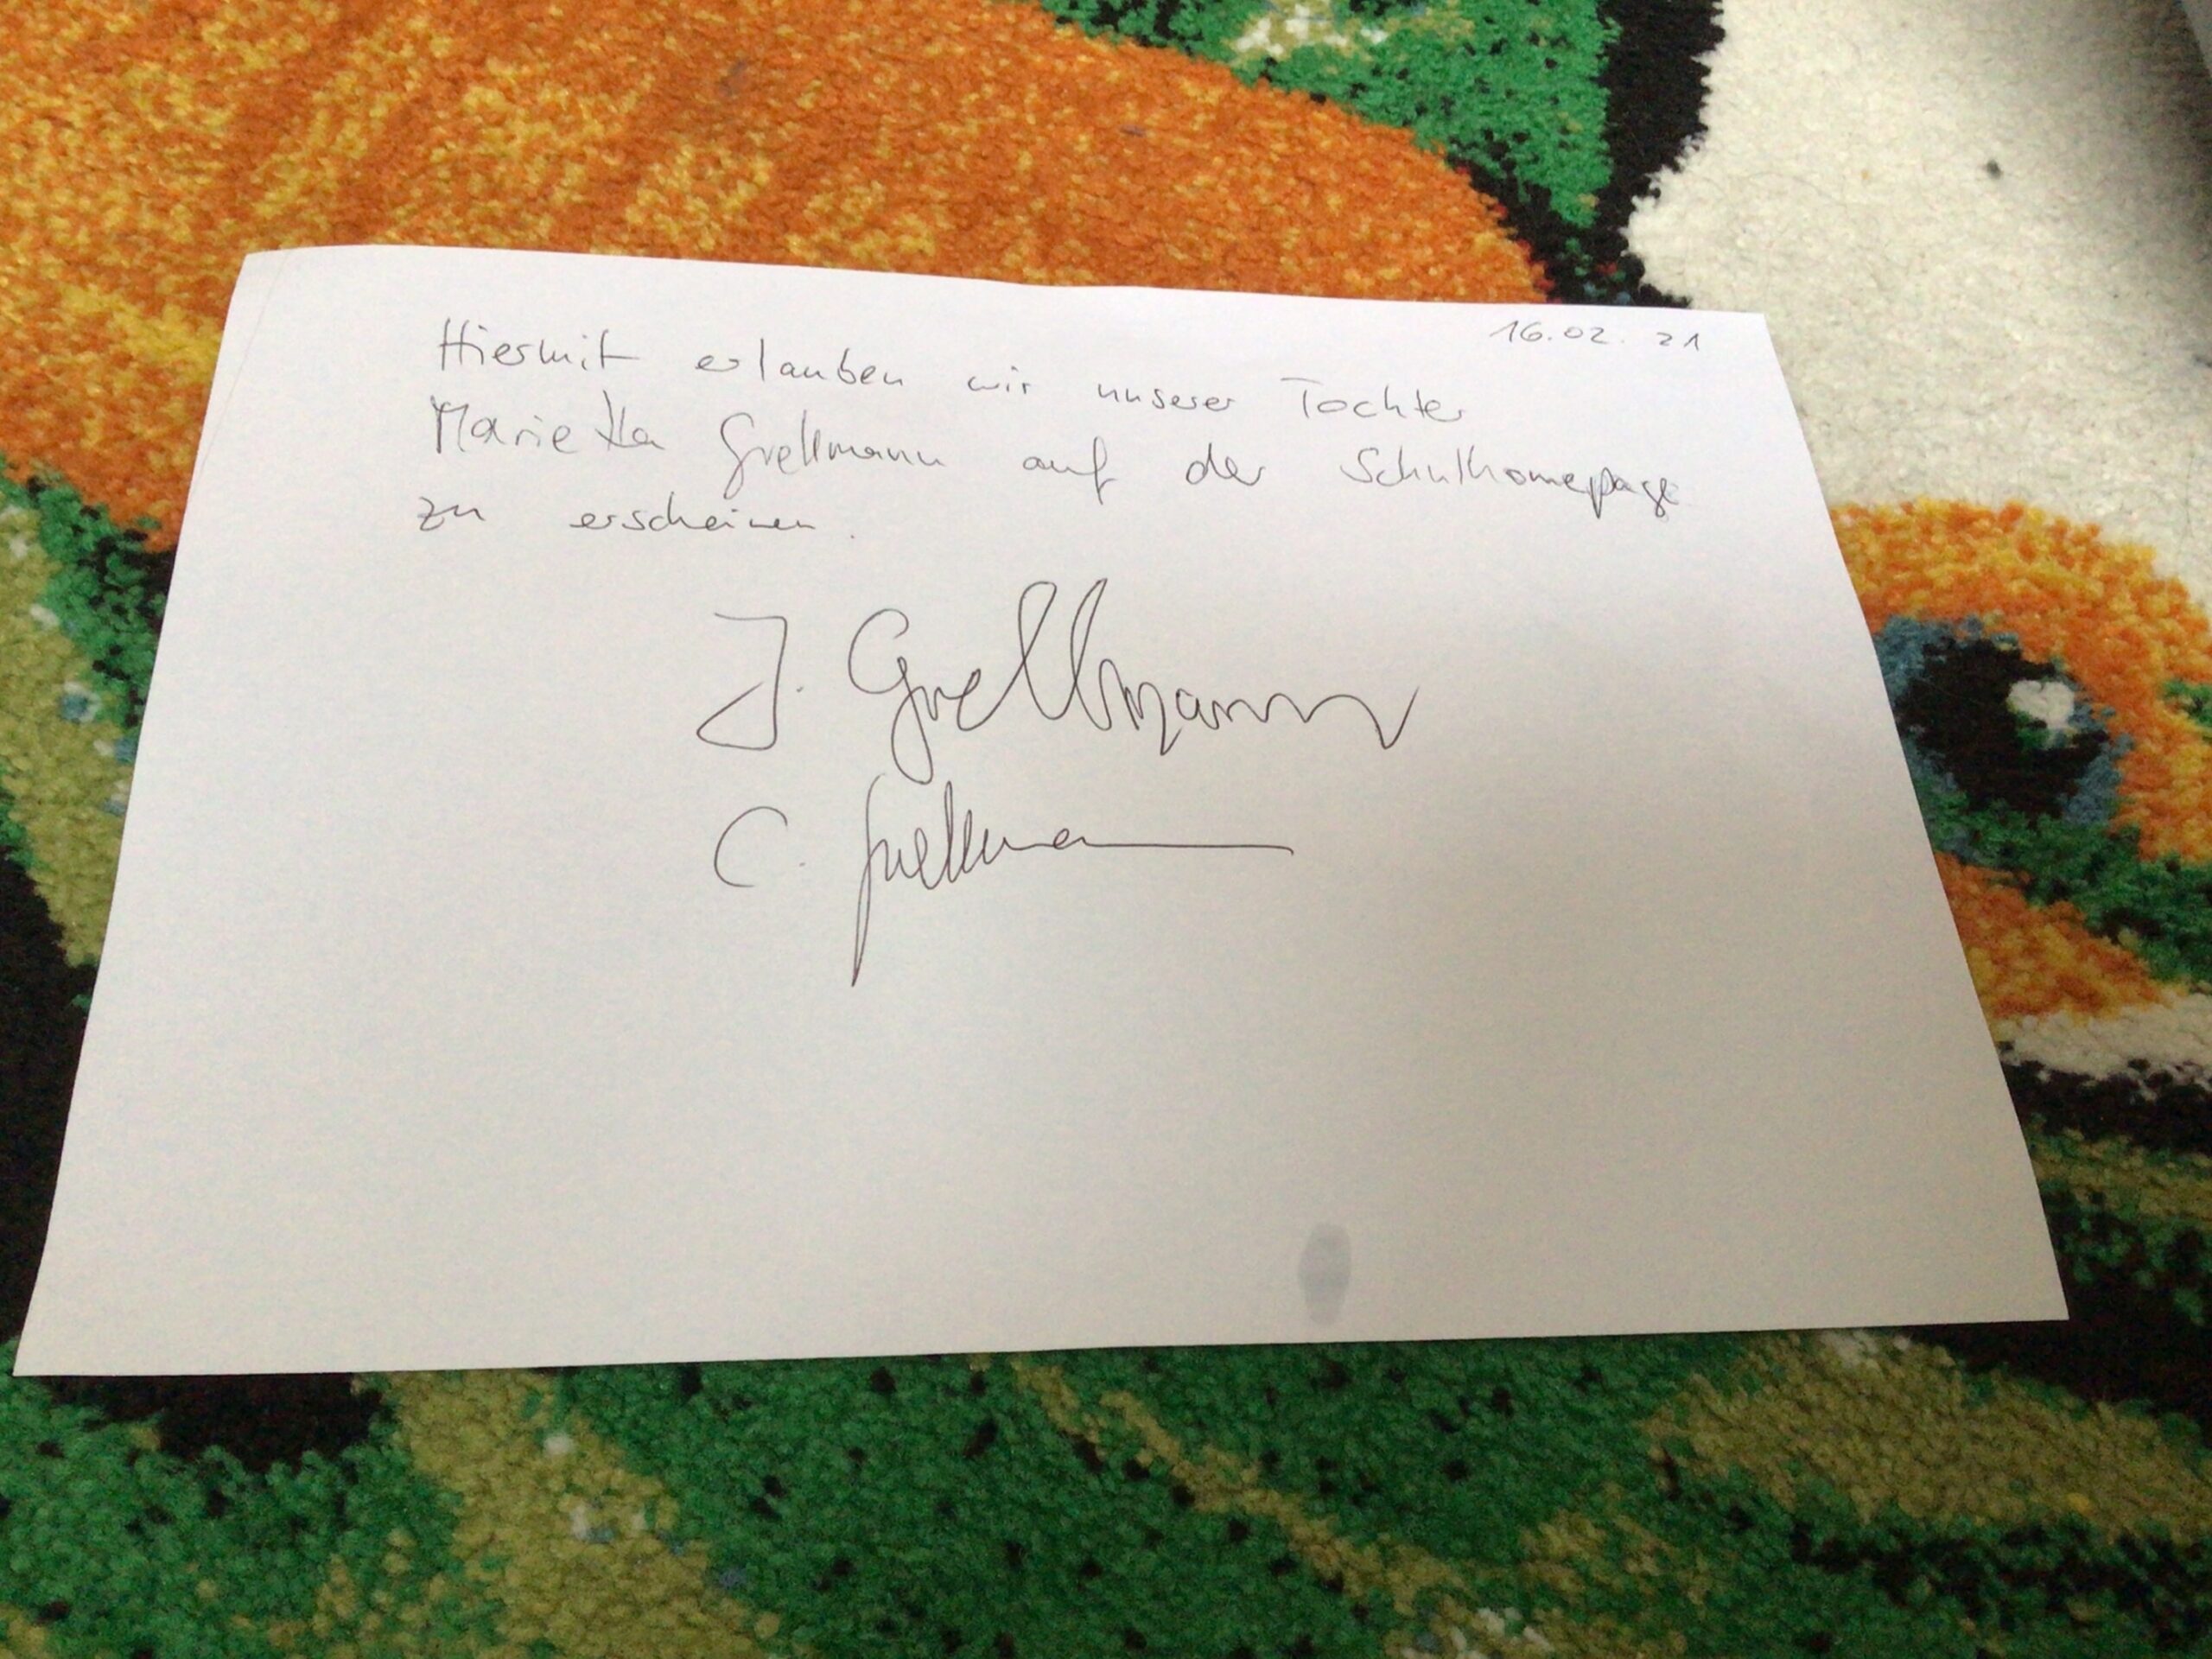 16.02.21
Hiermit erlauben wir unserer Tochter
Marietta Grellmann auf der Schulhomepage
zu erscheinen.
J. Grellmann
C. Grellmann